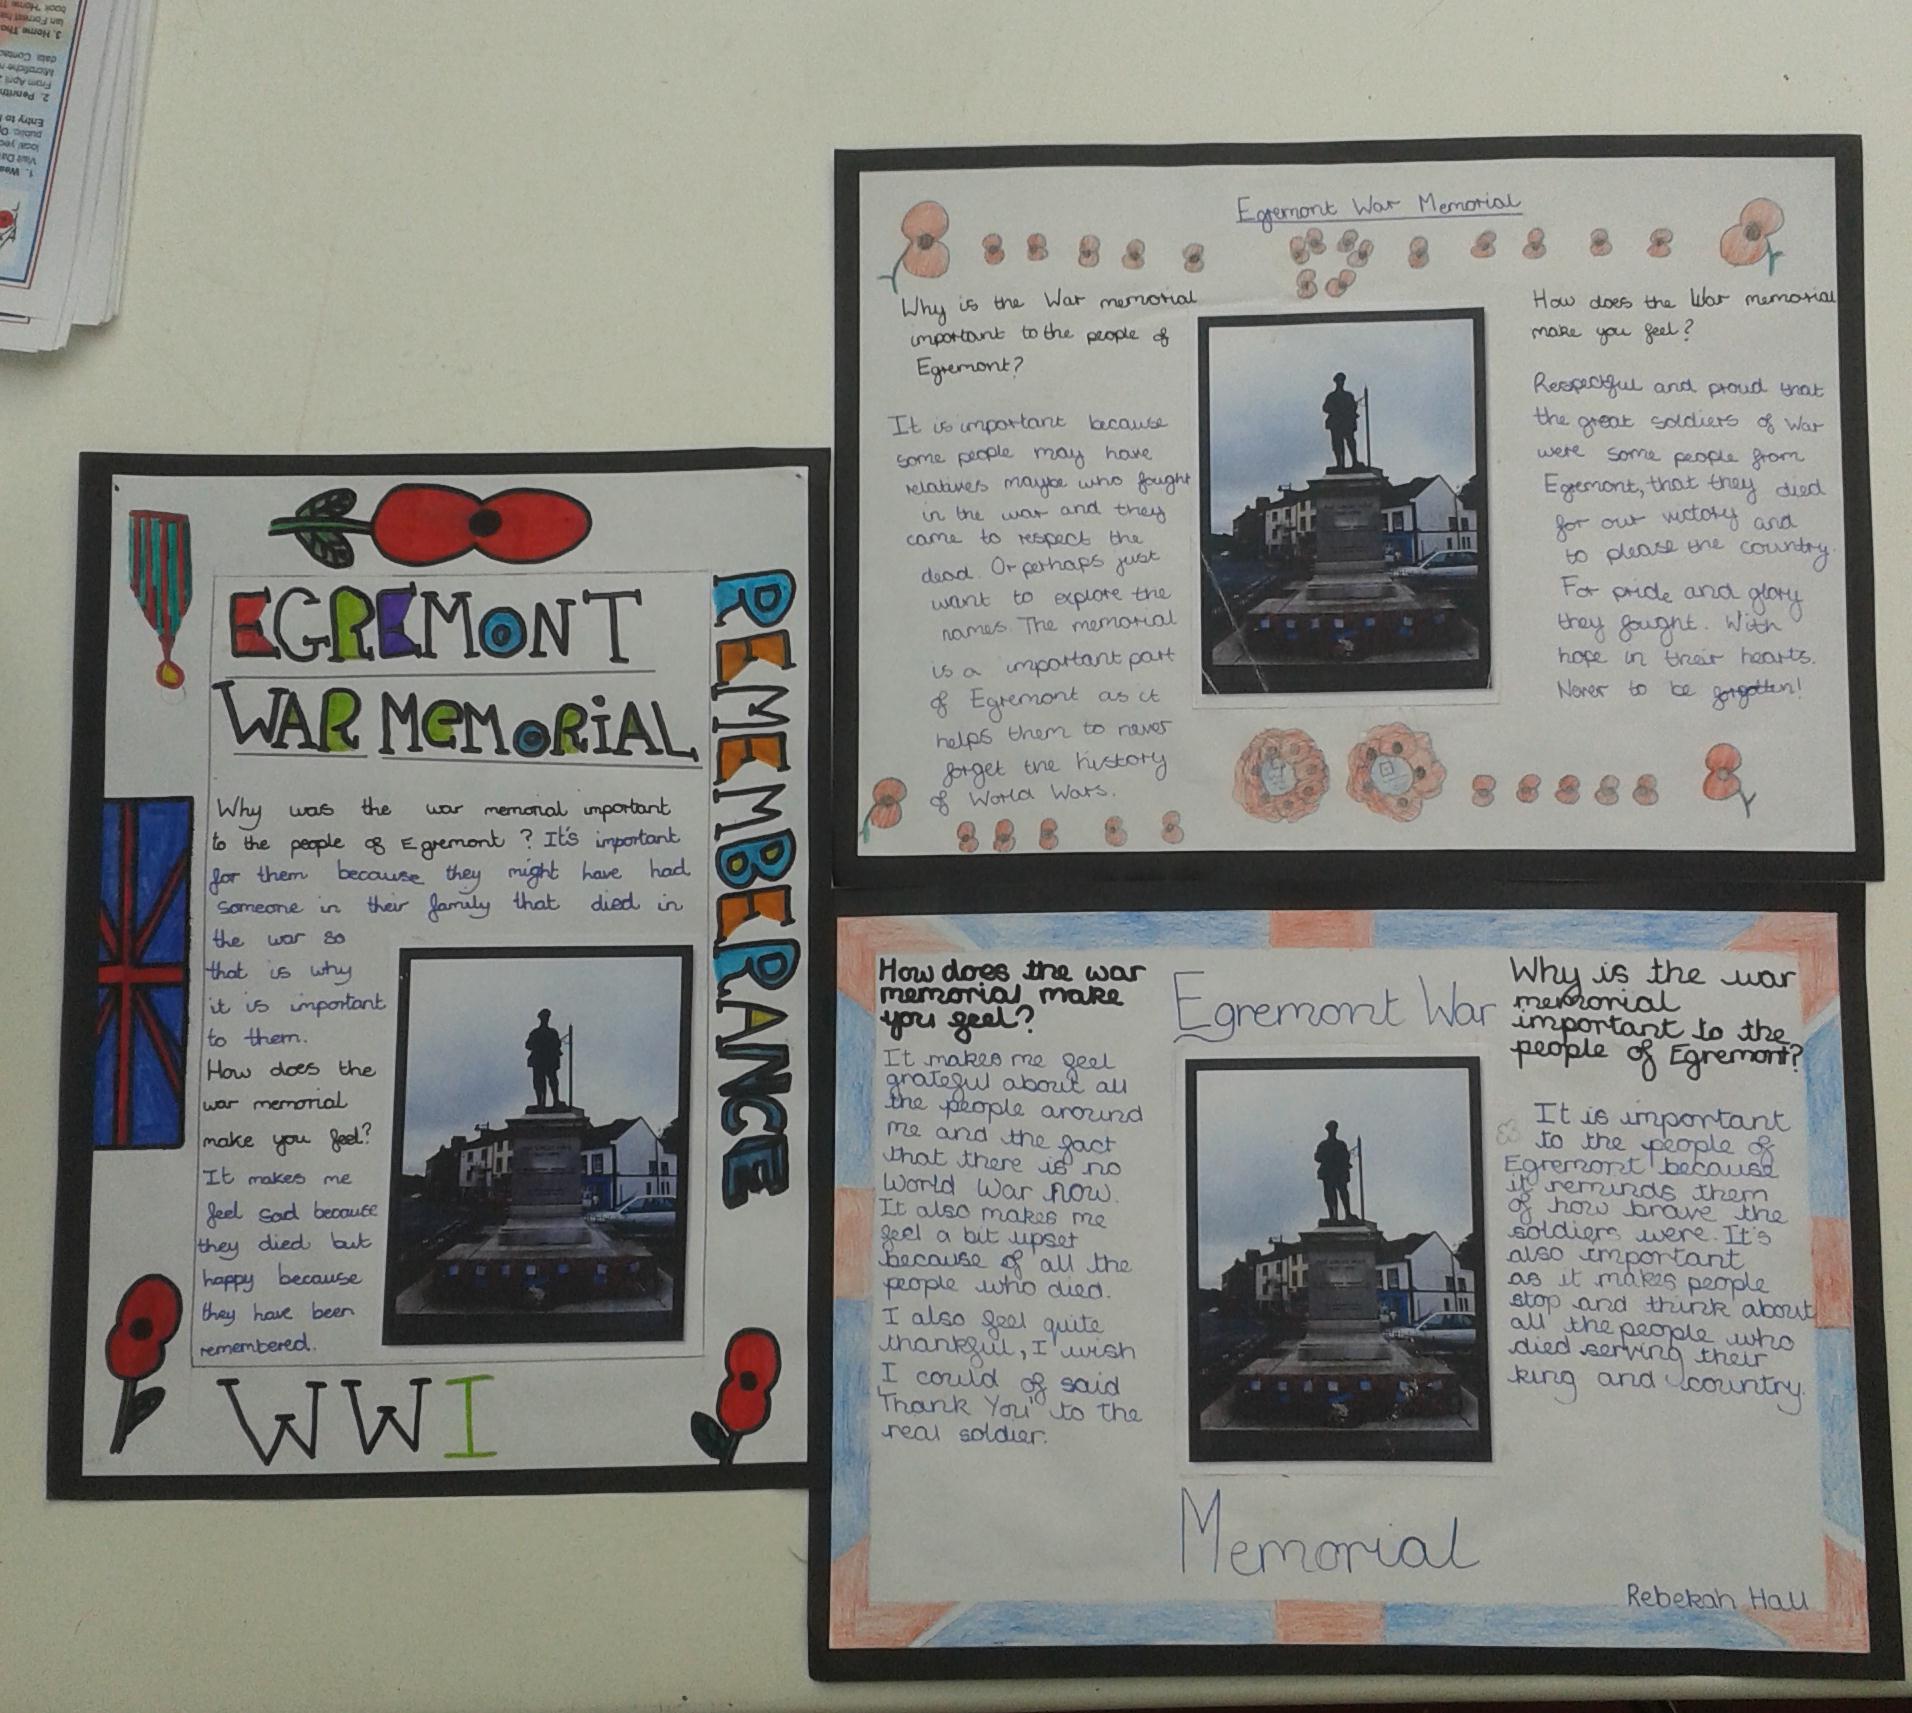 EGREMONT
WAR MEMORIAL
Why was the war memorial important
to the people of Egremont? It's important
for them because they might have had
someone in their family that died in
the war so
that is why
it is important
to them.
How does the
war memorial
make you feel?
It makes me
feel sad because
they died but
happy because
they have been
remembered.
WWI
REMEMBERANCE
Egremont War Memorial
Why is the War memorial
important to the people of
Egremont?
It is important because
some people may have
relatives maybe who fought
in the war and they
came to respect the
dead. Or perhaps just
want to explore the
names. The memorial
is a important part
of Egremont as it
helps them to never
forget the history
of World Wars.
How does the War memorial
make you feel?
Respectful and proud that
the great soldiers of War
were some people from
Egremont, that they died
for our victory and
to please the country.
For pride and glory
they fought. With
hope in their hearts.
Never to be forgotten!
How does the war
memorial make
you feel?
It makes me feel
grateful about all
the people around
me and the fact
that there is no
World War now.
It also makes me
feel a bit upset
because of all the
people who died.
I also feel quite
thankful, I wish
I could of said
'Thank You' to the
real soldier.
Egremont War
Memorial
Why is the war
memorial
important to the
people of Egremont?
It is important
to the people of
Egremont because
it reminds them
of how brave the
soldiers were. It's
also important
as it makes people
stop and think about
all the people who
died serving their
king and country.
Rebekah Hall